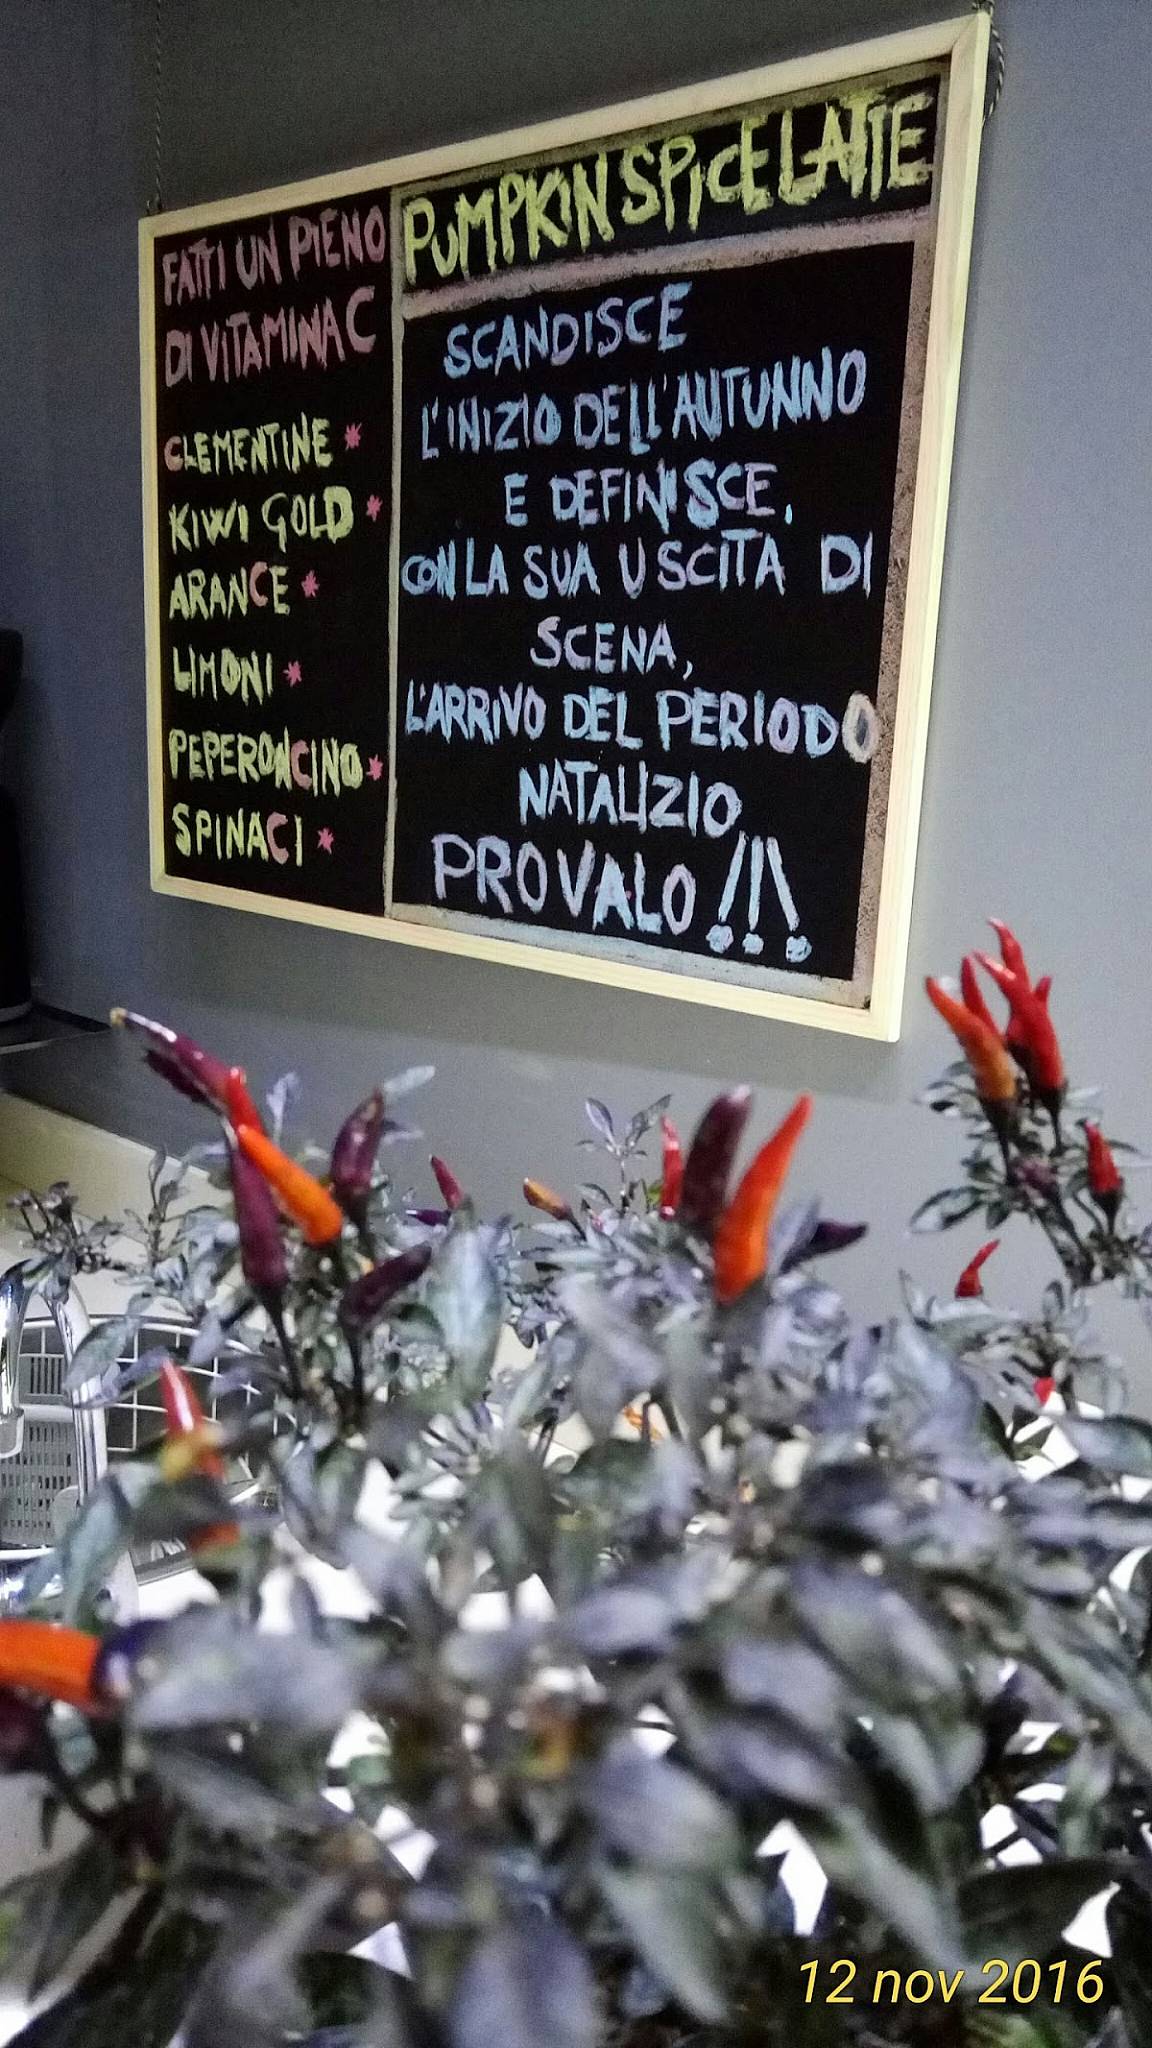 FATTI UN PIENO
DI VITAMINA C
CLEMENTINE *
KIWI GOLD *
ARANCE *
LIMONI *
PEPERONCINO *
SPINACI *
PUMPKIN SPICE LATTE
SCANDISCE
L'INIZIO DELL'AUTUNNO
E DEFINISCE,
CON LA SUA USCITA DI
SCENA,
L'ARRIVO DEL PERIODO
NATALIZIO
PROVALO!!!
12 nov 2016